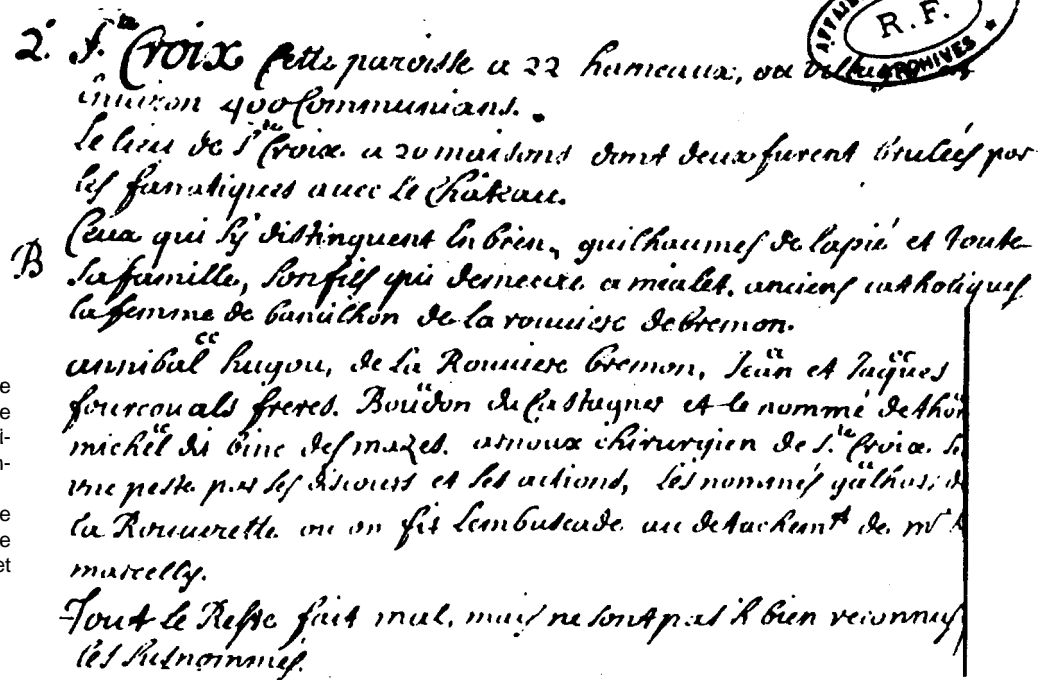 2.° S.te Croix Cette paroisse a 22 hameaux, ou
environ 400 Communians.
Le lieu de S.te Croix a 20 maisons dont deux furent brulées par
les fanatiques avec Le Château.
B Ceux qui s'y distinguent En bien, guilhaumes de lapié et toute
sa famille, son fils qui demeure a mialet. anciens catholiques
la femme de de la rouviere de bremon.
annibal hugou, de La Rouviere bremon, Jean et Jaques
fourcouals freres. Boudon du Castagner et le nomme
michel du des mazes. arnoux chirurgien de S.te Croix.
une peste par ses discours et ses actions, Les nommés
la Rouverette ou on fit Lembuscade au detachemt de mr
marcelly.
Tout Le Reste fait mal, mais ne sont pas si bien reconnus
les susnommés.
AFFAIRES
R.F.
ARCHIVES
e
e
i-
n-
e
e
et